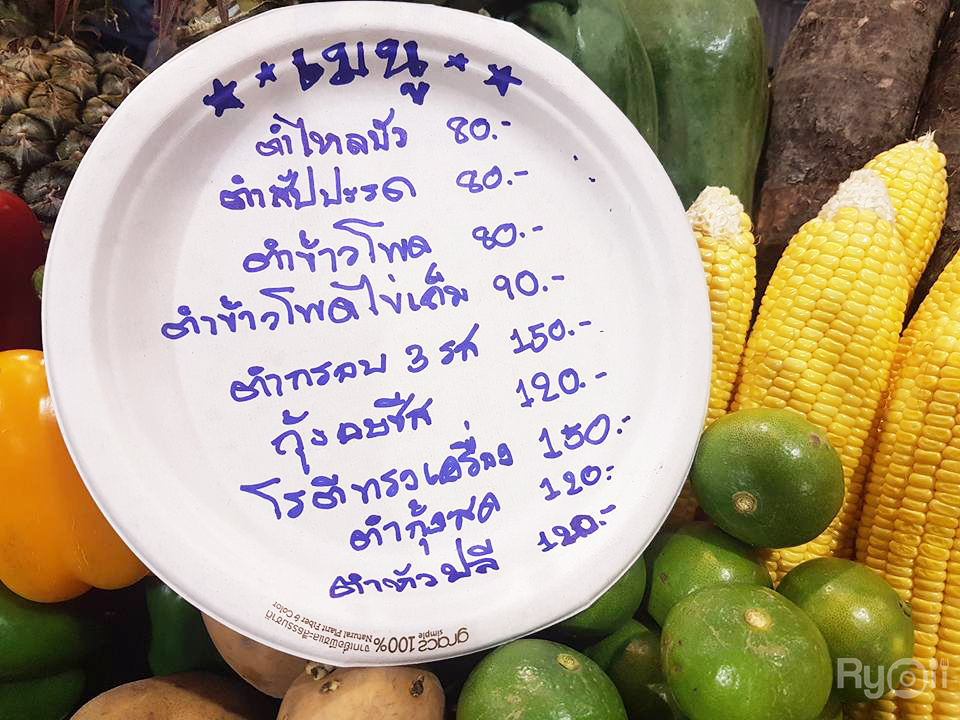 เมนู
ตำไหลบัว 80.-
ตำสัปปะรด 80.-
ตำข้าวโพด 80.-
ตำข้าวโพดไข่เค็ม 90.-
ตำกรอบ 3 รส 150.-
กุ้งอบชีส 120.-
โรตีทรงเครื่อง 150.-
ตำกุ้งสด 120.-
ตำหัวปลี 120.-
จากเยื่อพืชและสีธรรมชาติ
Natural Plant Fiber & Color
100%
gracz
simple
Ryoii